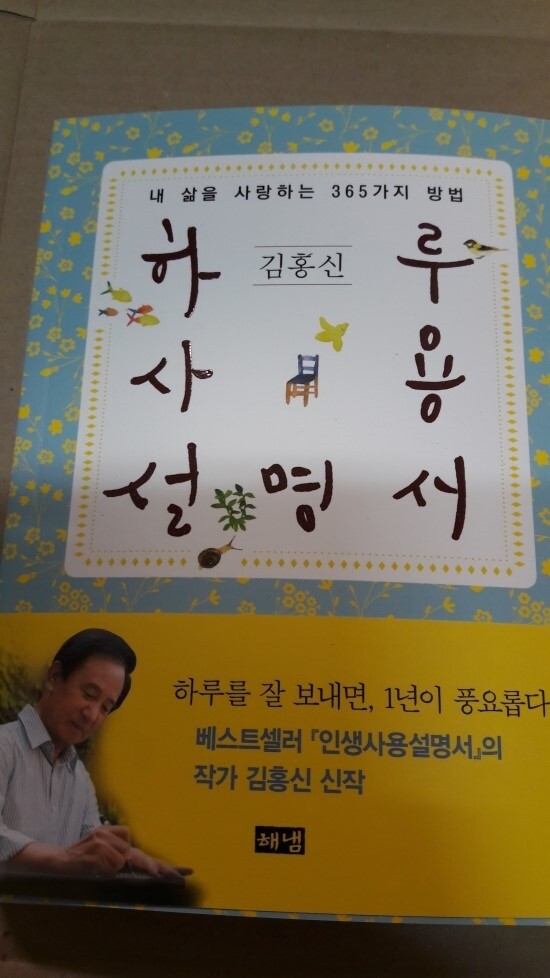 내 삶을 사랑하는 365가지 방법
하루
김홍신
사용
설명서
하루를 잘 보내면, 1년이 풍요롭다
베스트셀러 『인생사용설명서』의
작가 김홍신 신작
해냄